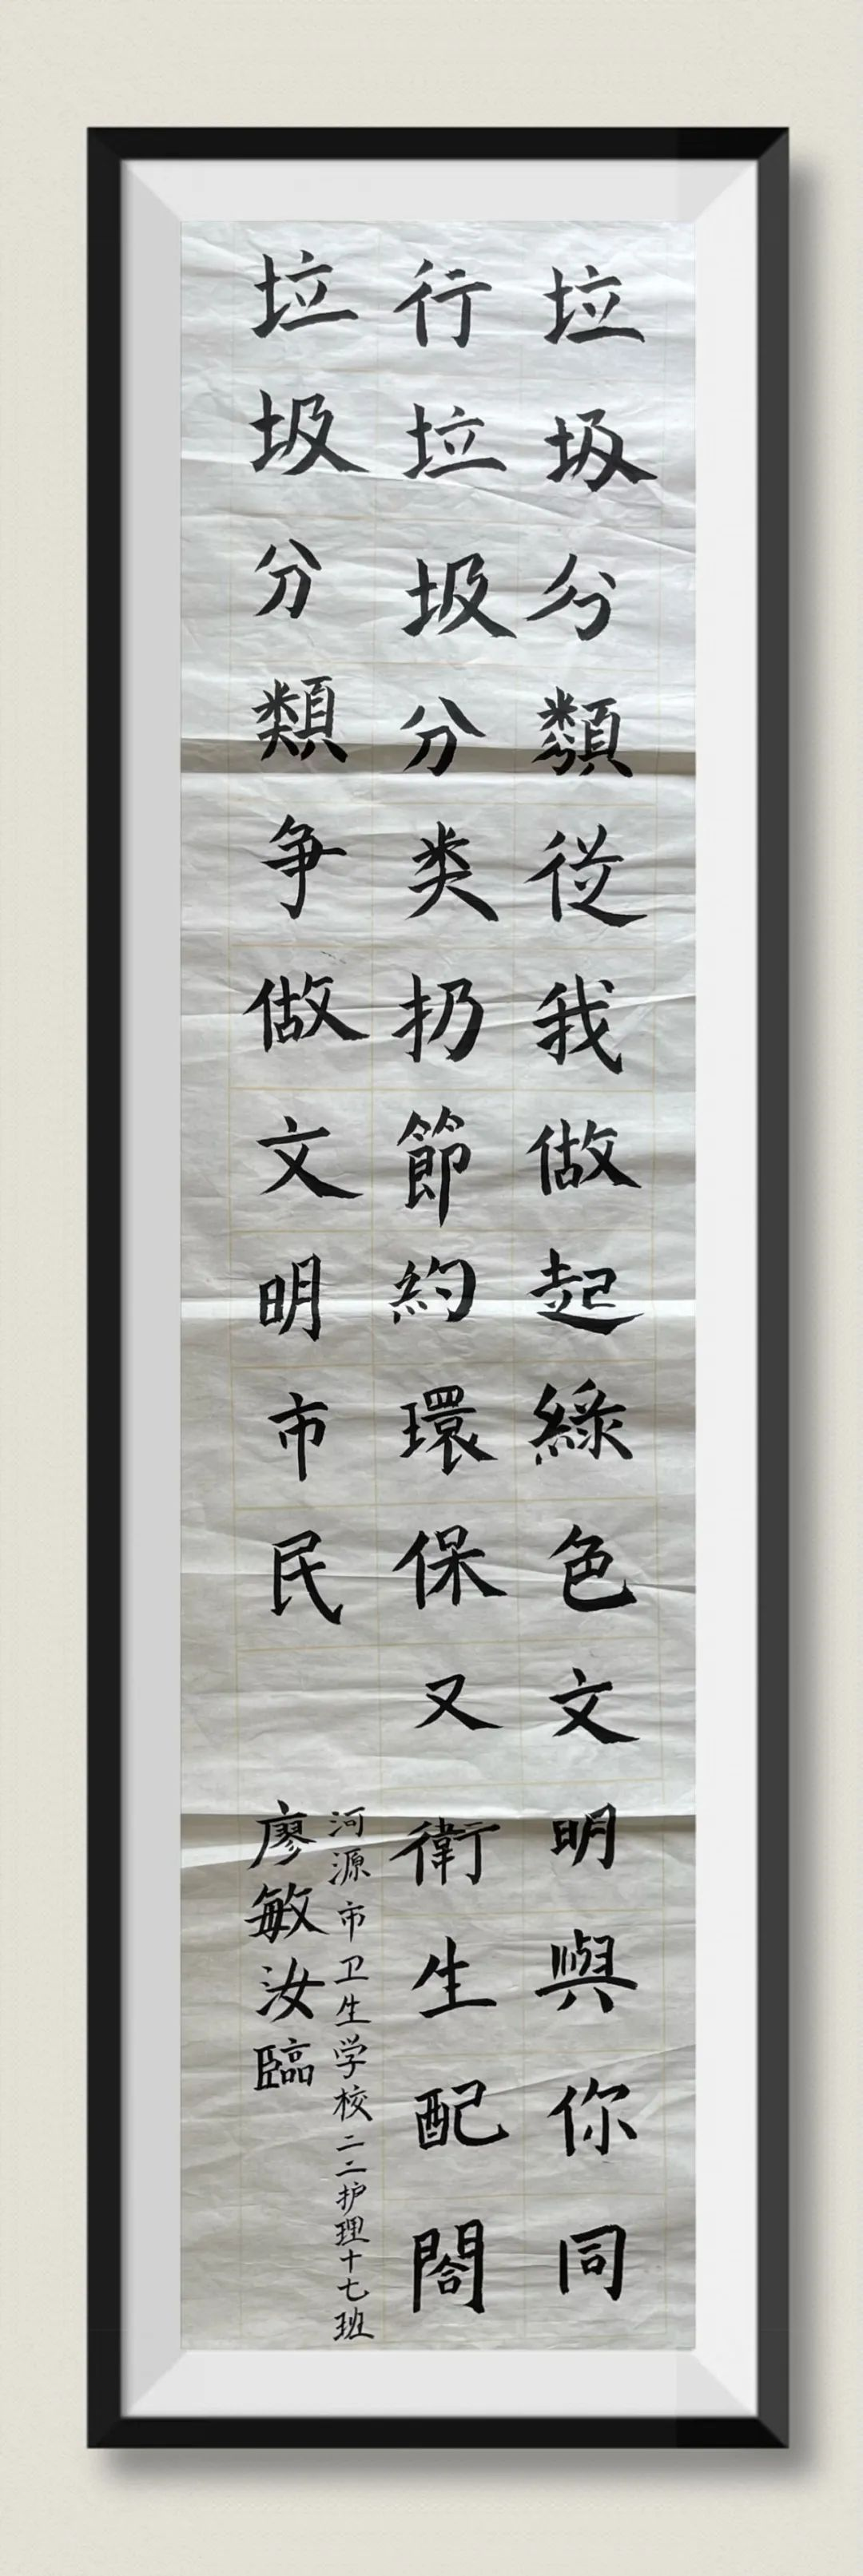 垃圾分類從我做起綠色文明與你同
行垃圾分类扔節約環保又衛生配閤
垃圾分類争做文明市民
河源市卫生学校二二护理十七班
廖敏汝臨